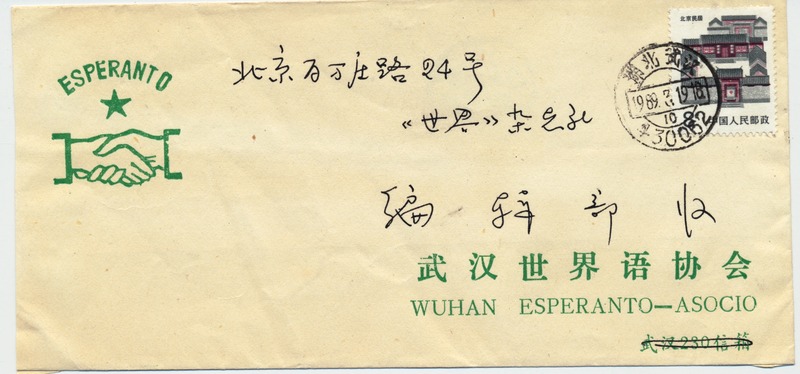 ESPERANTO
北京百万庄路24号
《世界》杂志社
编辑部 收
武汉世界语协会
WUHAN ESPERANTO—ASOCIO
武汉230信箱
北京民居
中国人民邮政
湖北武汉
1989.3.19.18
10
430062